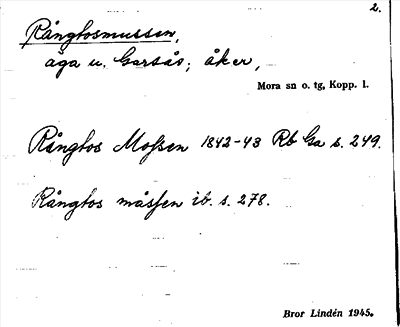 2.
Rångtosmussen,
äga u. Garsås; åker,
Mora sn o. tg, Kopp. l.
Rångtos Mossen 1842-43 Rb Ga s. 249.
Rångtos måssen ib. s. 278.
Bror Lindén 1945.